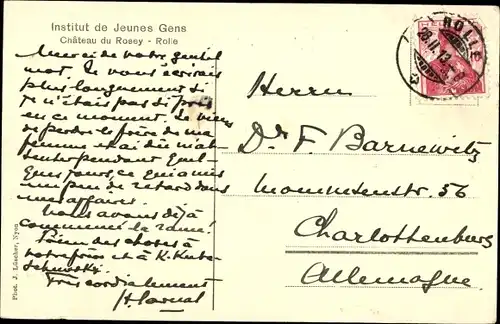 Institut de Jeunes Gens
Château du Rosey - Rolle
Merci de votre gentil
mot. Je vous écrirais
plus longuement si
je n'étais pas si pris
en ce moment. Je viens
de perdre le frère de ma
femme et ai dû m'ab-
senter pendant quel-
ques jours, ce qui a mis
un peu de retard dans
mes affaires.
Nous avons déjà
commencé la rame!
Bien des choses à
votre frère et à K.
Très cordialement
H. Carnal
Phot. J. Lüscher, Nyon
ROLLE
28.II.13
Herrn
Dr. F. Barnewitz
Mommsenstr. 56
Charlottenburg
Allemagne